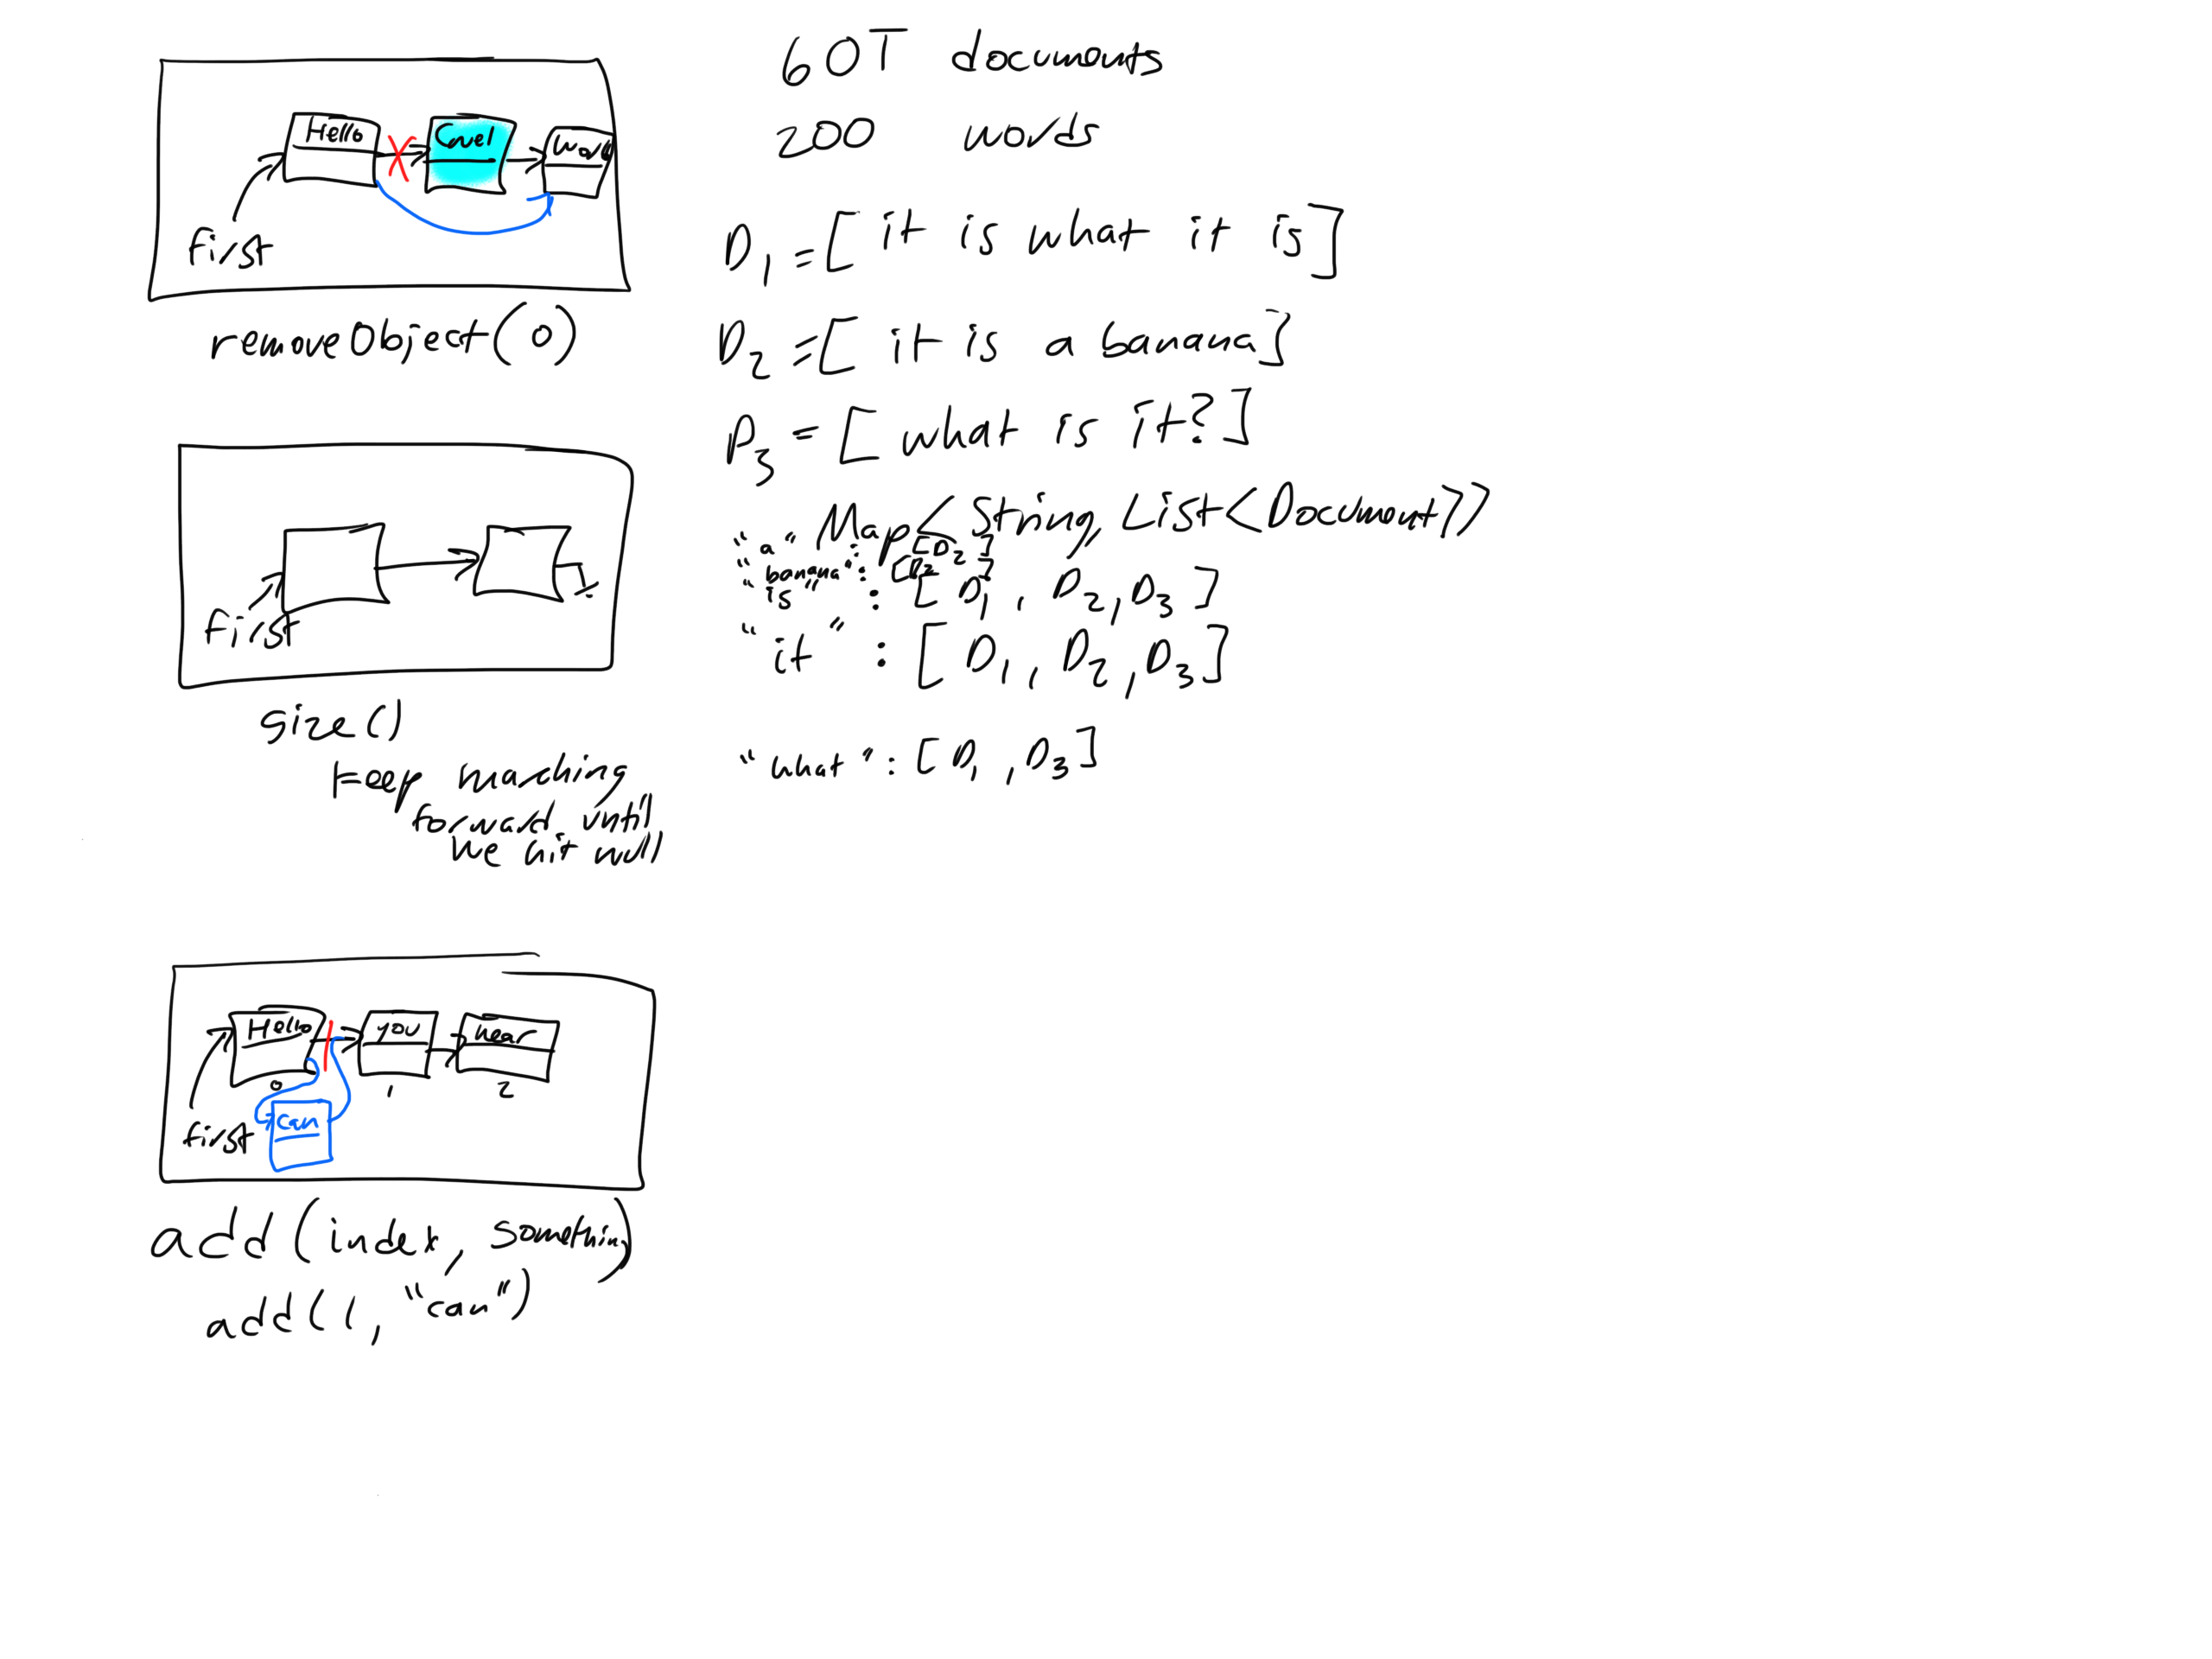 Hello Cruel World
first
removeObject(0)
first
size()
keep marching
forward until
we hit null
Hello you near
0 1 2
can
first
add(index, something)
add(1, "can")
60T documents
200 words
D1=[it is what it is]
D2=[it is a banana]
D3=[what is it?]
Map<String, List<Document>>
"a" : [D2]
"banana": [D2]
"is" : [D1, D2, D3]
"it" : [D1, D2, D3]
"what": [D1, D3]